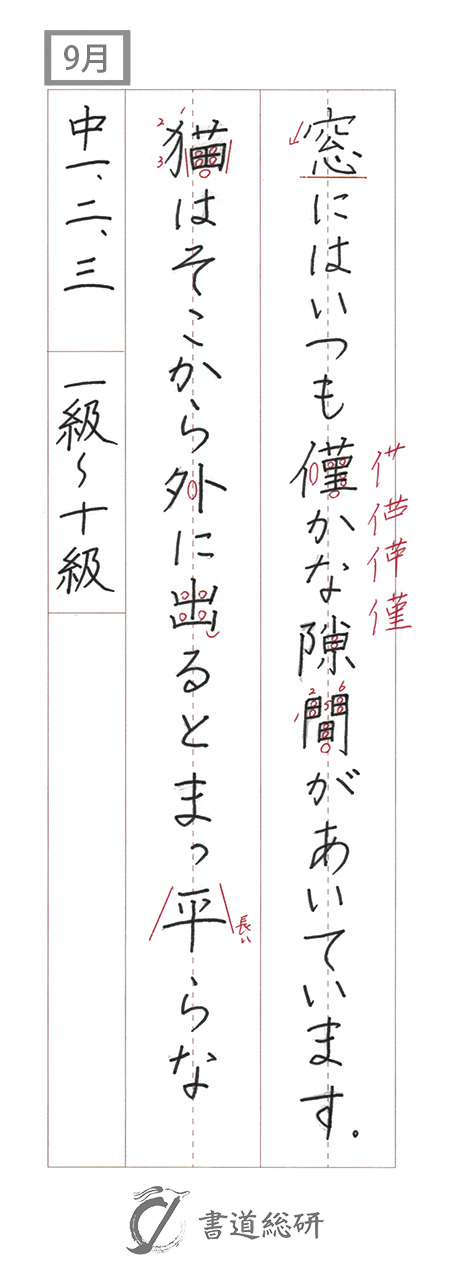 9月
窓にはいつも僅かな隙間があいています。
猫はそこから外に出るとまっ平らな
中一、二、三 一級〜十級
1
2
3
1
2
5
6
長い
書道総研